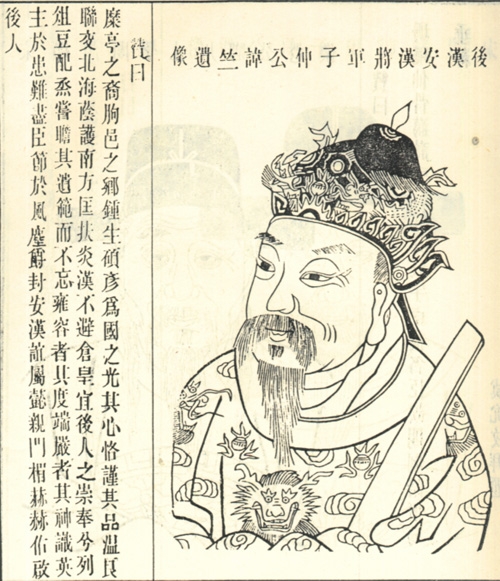 後漢安漢將軍子仲公諱竺遺像
贊曰
糜亭之裔朐邑之鄉鍾生碩彥爲國之光其心恪謹其品溫良
聯交北海蔭護南方匡扶炎漢不避倉皇宜後人之崇奉兮列
俎豆配烝嘗瞻其遺範而不忘雍容者其度端嚴者其神識英
主於患難盡臣節於風塵爵封安漢誼屬懿親門楣赫赫佑啟
後人